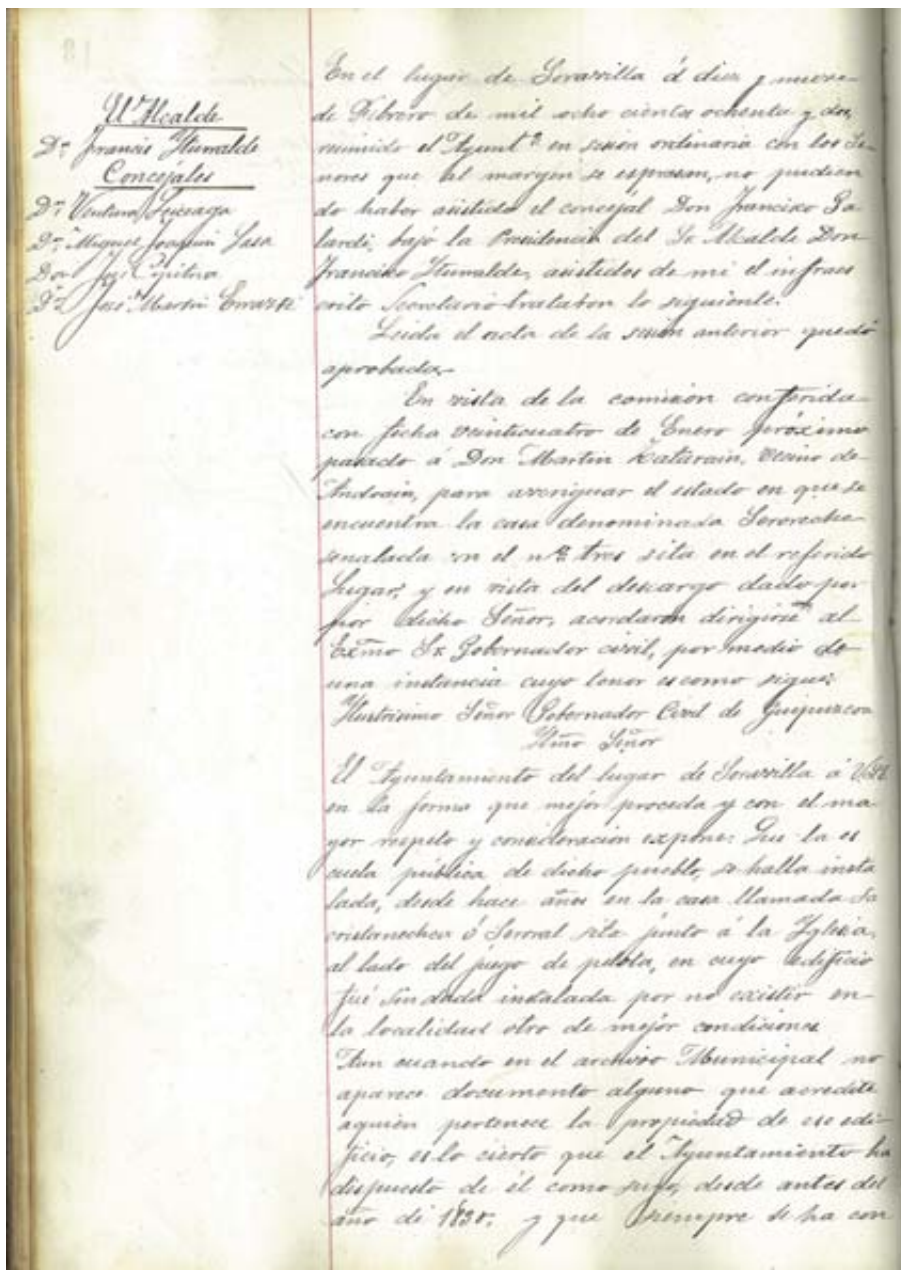 Sr Alcalde
Dn Francisco Yturralde
Concejales
Dn Ventura Leizeaga
Dn Miguel Joaquin Sasa
Don José Egitna
Dn José Martin Errazti
En el lugar de Soravilla á diez y nueve
de Febrero de mil ocho cienta ochenta y dos,
reunido el Ayunto en sesion ordinaria con los Se-
nores que al margen se espresan, no pudien
do haber asistido el concejal Don Francisco Ga
lardi, bajo la Presidencia del Sr Alcalde Don
Francisco Yturralde, asistidos de mi el infraes
crito Secretario trataron lo siguiente.
Leida el acta de la sesion anterior quedó
aprobada.
En vista de la comision conferida
con fecha veinticuatro de Enero próximo
pasado á Don Martin Zatarain, vecino de
Andoain, para averiguar el estado en que se
encuentra la casa denominada Seroreche
senalada con el no tres sita en el referido
Lugar, y en vista del descargo dado por
por dicho Señor, acordaron dirigirse al
Exmo Sr Gobernador civil, por medio de
una instancia cuyo tenor es como sigue:
Ylustrisimo Señor Gobernador Civil de Guipuzcoa
Ylmo Señor
El Ayuntamiento del lugar de Soravilla á
en la forma que mejor proceda y con el ma
yor respeto y consideracion expone: Que la es
cuela pública de dicho pueblo, se halla insta
lada, desde hace años en la casa llamada Sa
cristanechea ó Serroral sita junto á la Yglesia,
al lado del juego de pelota, en cuyo edificio
fué sin duda instalada por no existir en
la localidad otro de mejor condiciones
Aun cuando en el archivo Municipal no
aparece documento alguno que acredite
aquien pertenece la propiedad de ese edi-
ficio, es lo cierto que el Ayuntamiento ha
dispuesto de él como suyo, desde antes del
año de 1830. y que siempre se ha con